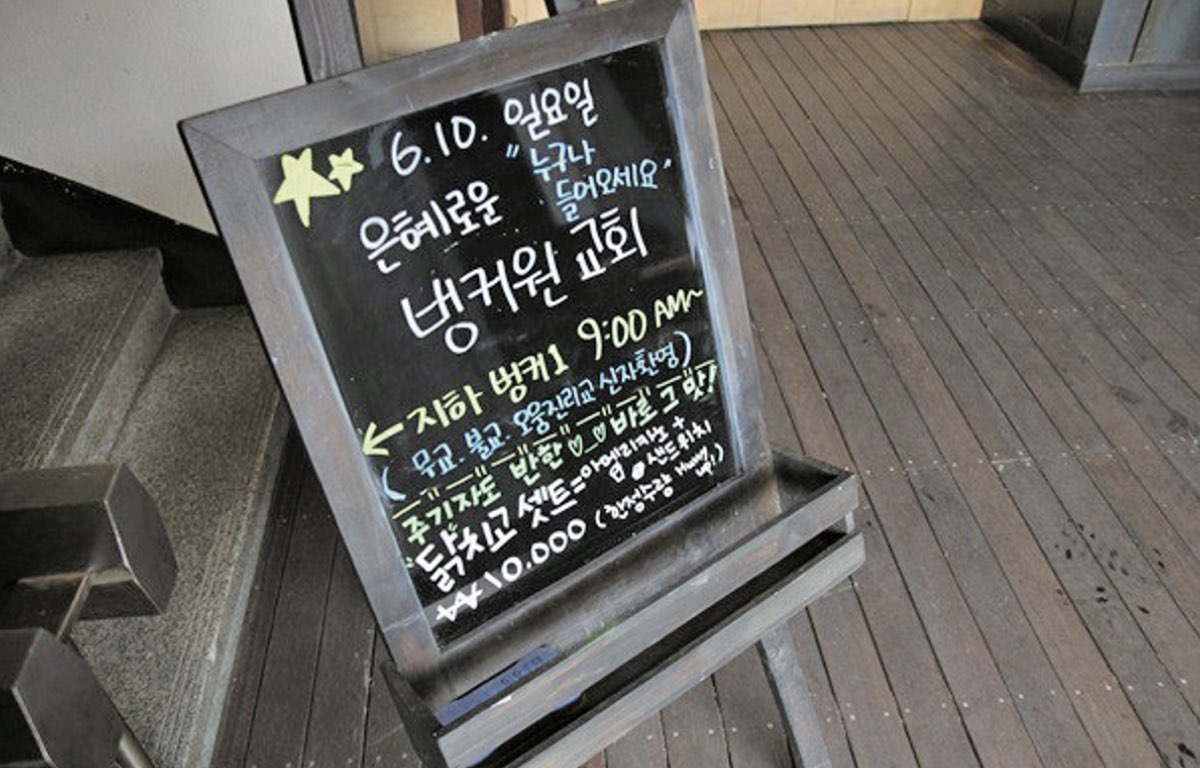 6.10. 일요일
"누구나
들어오세요"
은혜로운
벙커원 교회
← 지하 벙커1 9:00 AM~
( 무교. 불교. 오웅진리교 신자환영)
주기자도 반한 ♡_♡ 바로 그 맛!
"닭치고" 셋트=아메리카노 +
샌드위치
₩10.000 (한정수량 Hurry
up!)